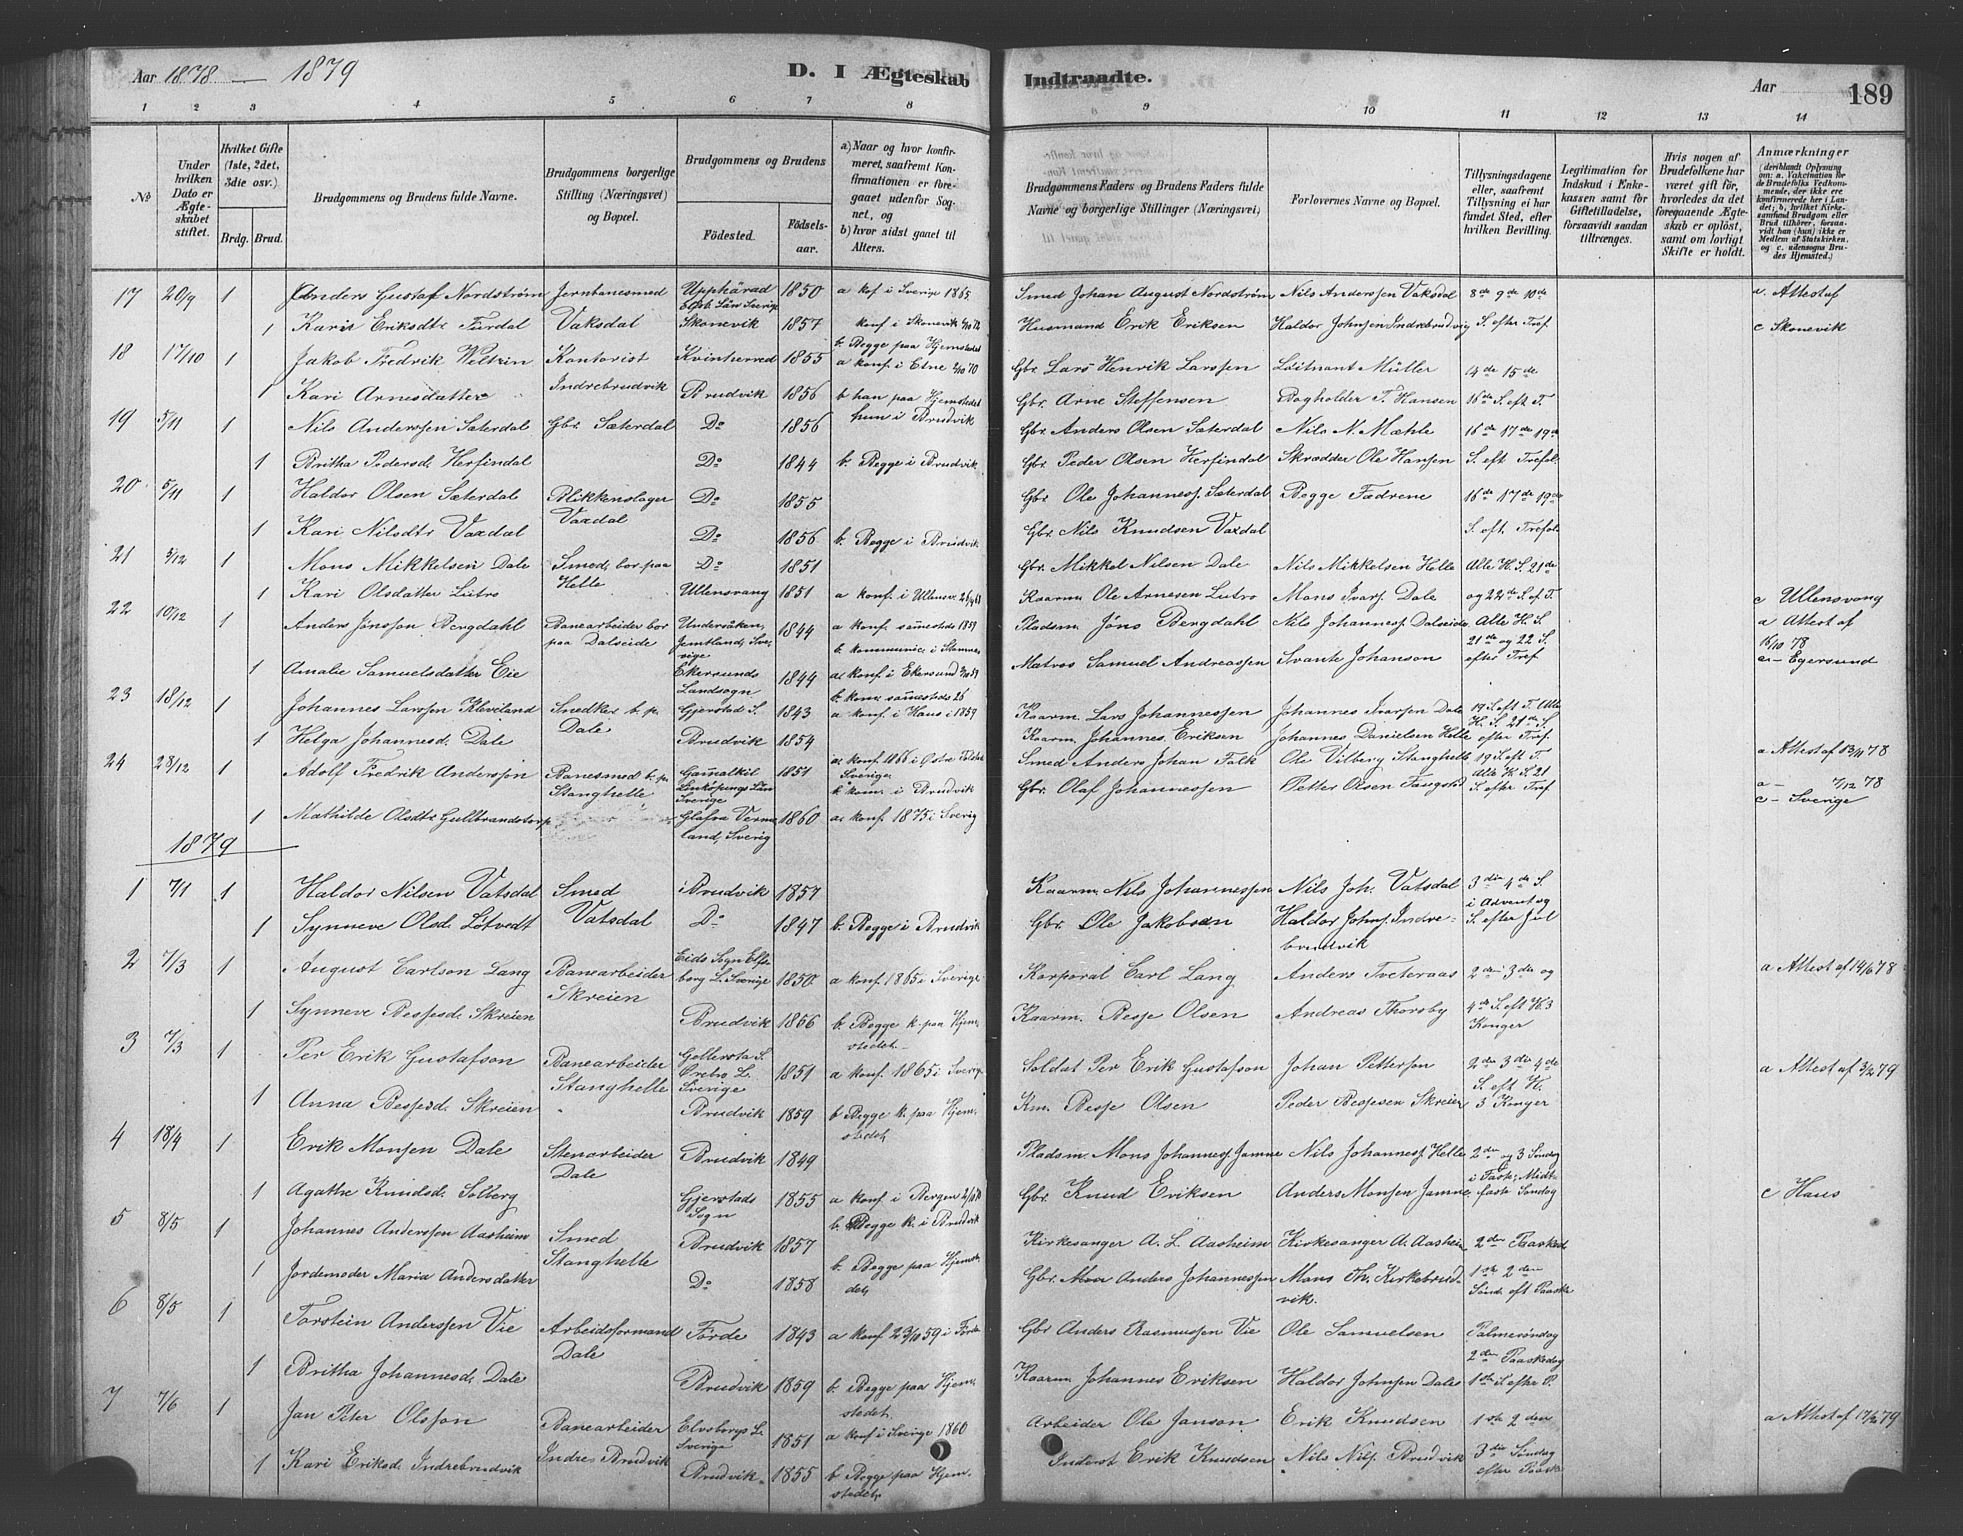 Aar 1878 — 1879
D. I Ægteskab Indtraadte.
Aar
189
1 2 3 4 5 6 7 8 9 10 11 12 13 14
№
Under hvilken Dato er Ægteskabet stiftet.
Hvilket Gifte (1ste, 2det, 3die osv.)
Brdg. Brud.
Brudgommens og Brudens fulde Navne.
Brudgommens borgerlige Stilling (Næringsvei) og Bopæl.
Brudgommens og Brudens
Fødested. Fødselsaar.
a) Naar og hvor konfirmeret, saafremt Konfirmationen er foregaaet udenfor Sognet, og
b) hvor sidst gaaet til Alters.
Brudgommens Faders og Brudens Faders fulde Navne og borgerlige Stillinger (Næringsvei)
Forlovernes Navne og Bopæl.
Tillysningsdagene eller, saafremt Tillysning ei har fundet Sted, efter hvilken Bevilling.
Legitimation for Indskud i Enkekassen samt for Giftetilladelse, forsaavidt saadan tiltrænges.
Hvis nogen af Brudefolkene har været gift før, hvorledes da det foregaaende Ægteskab er opløst, samt om lovligt Skifte er holdt.
Anmærkninger (deriblandt Oplysning om: a. Vakcination for de Brudefolks Vedkommende, der ikke ere konfirmerede her i Landet; b. hvilket Kirkesamfund Brudgom eller Brud tilhører, forsaavidt han (hun) ikke er Medlem af Statskirken, og c. udensogns Brudes Hjemsted.)
17 20/9 1 Anders Gustaf Nordström Jernbanesmed Upphärad Elfsb. Län Sverig 1850 a kof i Sverige 1865 Smed Johan August Nordström Nils Anderssen Vaksdal 8de 9de 10de a. Attest af
1 Kari Eriksdtr Furdal Vaksdal Skonevik 1857 konf i Skonevik Husmand Erik Eriksen Haldor Johnsen Indrebrudvig S. efter Tref. c Skonevik
b. Begge paa Hjemstedet
18 17/10 1 Jakob Fredrik Weltzin Kontorist Kvinherred 1855 a konf. i Etne 2/10 70 Gbr. Lars Henrik Larssen Löitnant Müller 14de 15de
1 Kari Arnesdatter Indrebrudvik Brudvik 1856 b han paa Hjemstedet hun i Brudvik Gbr. Arne Steffensen Bogholder T. Hansen 16de S. eft T.
19 5/11 1 Nils Anderssen Sæterdal Gbr. Sæterdal Do 1856 Gbr. Anders Olsen Sæterdal Nils N. Mæhle 16de 17de 19de
1 Britha Pedersd. Herfindal Do 1844 b. Begge i Brudvik Gbr. Peder Olsen Herfindal Skrædder Ole Hansen S. eft Trefol.
20 5/11 1 Haldor Olsen Sæterdal Blikkenslager Do 1855 Gbr. Ole Johanness. Sæterdal Begge Fædrene 16de 17de 19de
1 Kari Nilsdtr Vaxdal Vaxdal Do 1856 b. Begge i Brudvik Gbr. Nils Knudsen Vaxdal S. eft. Trefol.
21 3/12 1 Mons Mikkelsen Dale Smed, bor paa Helle Do 1851 Gbr. Mikkel Nilsen Dale Nils Mikkelsen Helle Alle H. S. 21de
1 Kari Olsdatter Lutro Ullensvang 1851 a konf. i Ullensv. Kaarm. Ole Arnesen Lutro Mons Ivars. Dale og 22de S. ef T. c Ullensvang
22 10/12 1 Anders Jönsson Bergdahl Banearbeider bor paa Dalseide Undersåken, Jemtland, Sverige 1844 a konf. samesteds 1859 b kommunice. i Stamnes Pladsm. Jöns Bergdahl Nils Johanness. Dalseide Alle H. S. 21de og 22 S. a Attest af 15/10 78
1 Amalie Samuelsdatter Eie Ekersunds Landsogn 1844 a konf. i Ekersund b. kom. samesteds Matros Samuel Andreassen Svante Johanson efter Tref c - Egersund
23 18/12 1 Johannes Larssen Kleiveland Smedker b. p. Dale Gjerstad S. 1843 a konf. i Haus i 1859 Kaarm. Lars Johannessen Johannes Ivarsen Dale 19 S. eft T. Alle H. S. 21de S.
1 Helga Johannesd. Dale Brudvik 1854 Kaarm. Johannes Eriksen Johannes Danielsen Helle efter Tref
24 28/12 1 Adolf Fredrik Anderssen Banesmed b. p. Stanghelle Gammalkil Linköpings Län Sverige 1851 a konf. 1866 i Sverige. b. kom. i Brudvik Smed Anders Johan Falk Ole Vilberg Stanghelle 19 S. eft T. Alle H. S. 21 a Attest af 13/11 78
1 Mathilde Olsdtr Gullbrandstorp Glafva Vermland, Sverig 1860 a konf. 1875 i Sverig Gbr. Olaf Johannessen Petter Olsen S. efter Tref a - 7/12 78 c - Sverige
1879
1 7/1 1 Haldor Nilsen Vatsdal Smed Brudvik 1857 Kaarm. Nils Johannessen Nils Joh. Vatsdal 3die 4de S. i Advent og
1 Synneve Olsd. Løtvedt Vatsdal Do 1847 b. Begge i Brudvik Gbr. Ole Jakobsen Haldor Johns. Indrebrudvik S. efter Jul
2 7/3 1 August Carlson Lang Banearbeider Eids Sogn Elfsborg L. Sverige 1850. a konf. 1865 i Sverige Korporal Carl Lang Anders Tveteraas 2den 3die og a Attest af 14/6 78
1 Synneve Bessesd. Skreien Skreien Brudvik 1866 b. Begge k. paa Hjemstedet Kaarm. Besse Olsen Andreas Thorsby 4de S. eft H. 3 Konger
3 7/3 1 Per Erik Gustafson Banearbeider Gellersta S. Örebro L. Sverige 1851 a konf. 1865 i Sverige Soldat Per Erik Gustafson Johan Pettersen 2den 3die 4de S. eft H. a Attest af 3/2 79
1 Anna Bessesd. Skreien Stanghelle Brudvik 1859 b Begge k. paa Hjemstedet Km. Besse Olsen Peder Bessesen Skreien 3 Konger
4 18/4 1 Erik Monsen Dale Stenarbeider Dale Brudvik 1849 Pladsm. Mons Johanness. Jamne Nils Johanness. Helle 2den og 3 Søndag
1 Agathe Knudsd. Solberg Gjerstads Sogn 1855 a konf. i Bergen b. Begge k. i Brudvik Gbr. Knud Eriksen Anders Monsen Jamne i Faste, Midtfaste Søndag c Haus
5 8/5 1 Johannes Anderssen Aasheim Smed Brudvik 1857 Kirkesanger A. L. Aasheim Kirkesanger A. Aasheim 2den Paasked
1 Jordemoder Maria Andersdatter Stanghelle Do 1858 b. Begge paa Hjemstedet Gbr. Anders Johannessen Mons Th. Kirkebrudvik. 1ste 2den Sønd. eft Paaske
6 8/5 1 Torstein Anderssen Vie Arbeidsformand Dale Førde 1843 a konf. 23/10 59 i Førde Gbr Anders Rasmussen Vie Ole Samuelsen Palmesøndag 2den Paaskedag
1 Britha Johannesd. Dale Brudvik 1859 b. Begge paa Hjemstedet Kaarm. Johannes Eriksen Haldor Johnsen Dale 1ste S. efter P.
7 7/6 1 Jan Peter Olsson Banearbeider Elvsborgs L. Sverige 1851 a konf i Sverige 1860 Arbeider Ole Janson Erik Knudsen 1ste 2den a Attest af 17/2 79
1 Kari Eriksd. Indrebrudvik Indre Brudvik Brudvik 1855 b Begge paa Hjemstedet. Inderst Erik Knudsen Nils Nils. Brudvik 3die Søndag efter Paaske